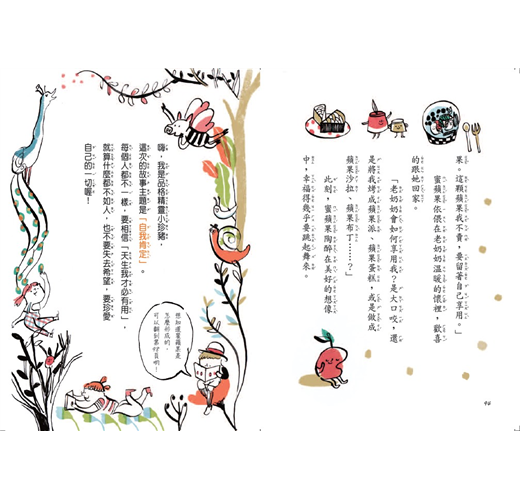 果。這顆蘋果我不賣，要留著自己享用。」
蜜蘋果依偎在老奶奶溫暖的懷裡，歡喜
的跟她回家。
「老奶奶會如何享用我？是大口咬，還
是將我烤成蘋果派、蘋果蛋糕，或是做成
蘋果沙拉、蘋果布丁……？」
此刻，蜜蘋果陶醉在美好的想像
中，幸福得幾乎要跳起舞來。
嗨，我是品格精靈小珍豬，
這次的故事主題是「自我肯定」。
每個人都不一樣，要相信「天生我才必有用」，
就算什麼都不如人，也不要失去希望，要珍愛
自己的一切喔！
想知道蜜蘋果是
怎麼形成的，
可以翻到第
頁喲！